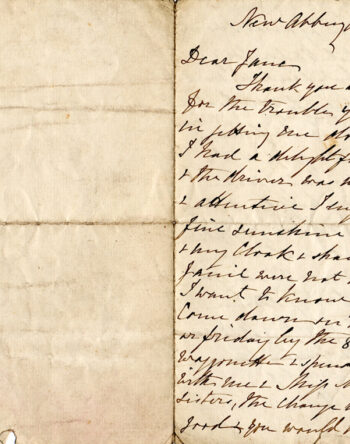 New Abbey
Dear Jane
Thank you
for the trouble
in getting me
I had a delight
& the driver was
& attentive I
fine sunshine
& my cloak &
were not
I want to know
come down on
or friday by the 8
waggonette & spend
with me & Miss
sisters, the change
good & you would